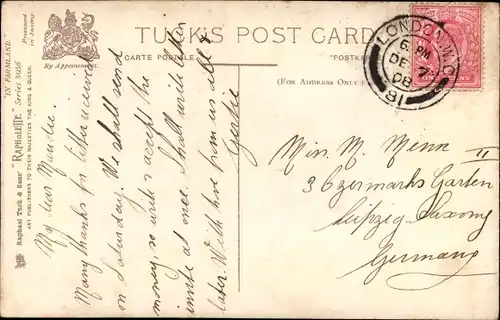 Raphael Tuck & Sons' "RAPHOLETTE" Series 9456 "IN FARMLAND."
ART PUBLISHERS TO THEIR MAJESTIES THE KING & QUEEN.
Processed in Saxony
By Appointment.
TUCK'S POST CARD
CARTE POSTALE.
"POSTKARTE
(FOR ADDRESS ONLY)
LONDON. W.C.
6. PM
DE 7
08
81
My dear Maudie.
Many thanks for letter received
on Saturday. We shall send
money, so write & accept the
invite at once. Shall write
later. With love from us all
Miss. M. Menn II
36 zermarks Garten
Leipzig. Saxony
Germany.